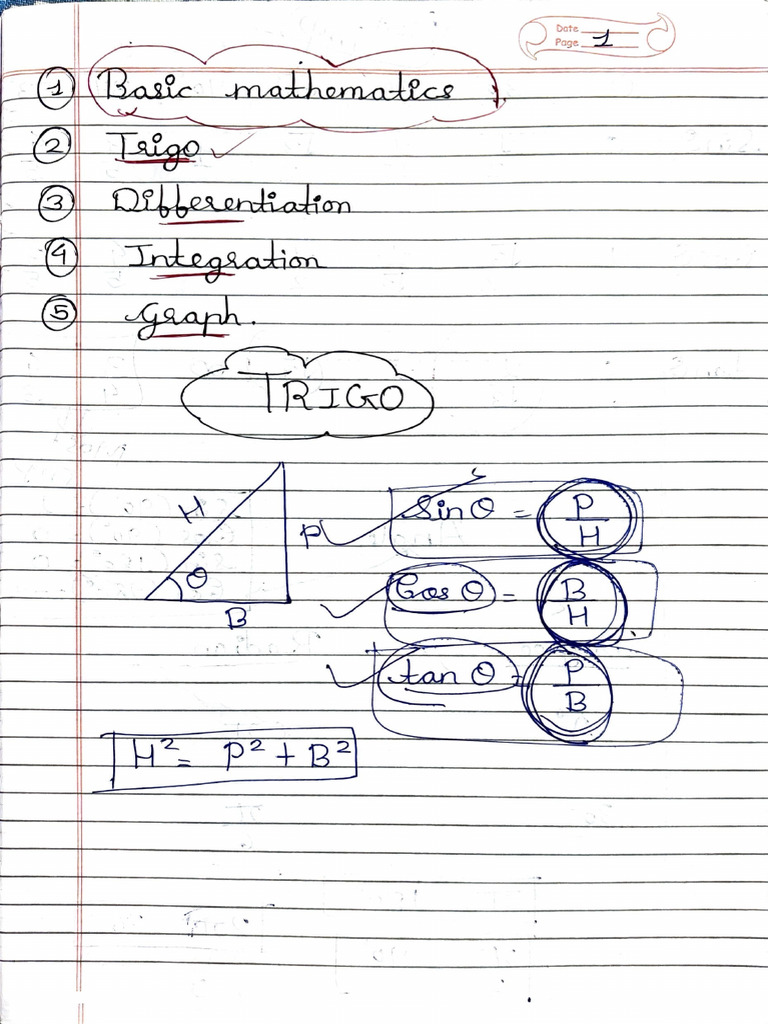 Date
Page 1
① Basic mathematics
② Trigo
③ Differentiation
④ Integration
⑤ Graph.
TRIGO
H
P
θ
B
Sin θ = P/H
Cos θ = B/H
tan θ = P/B
H² = P² + B²